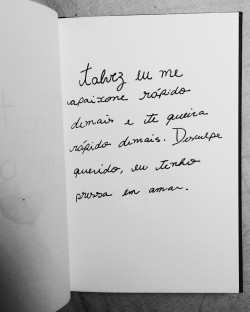 talvez eu me
apaixone rápido
dimais e te queira
rápido dimais. Desculpe
querido, eu tenho
pressa em amar.